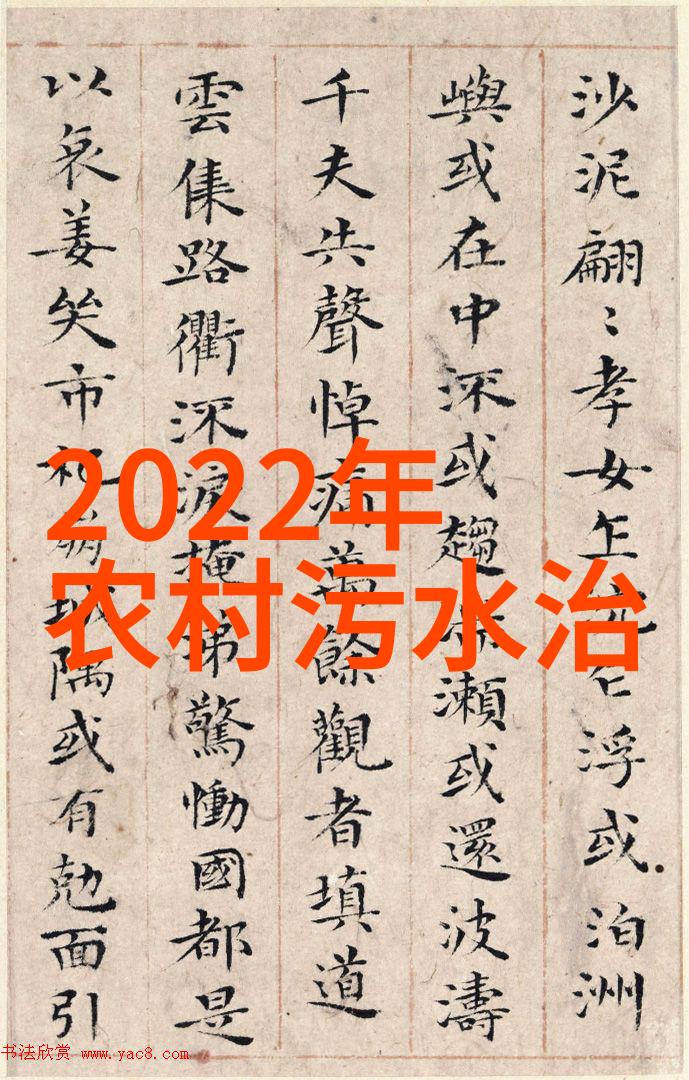 2022年
农村污水治
沙泥翩〻孝女乍沉乍浮或泊洲
嶼或在中深或趨瀨或還波濤
千夫失聲悼痛萬餘觀者填道
雲集路衢深淚掩涕驚慟國都是
以哀姜哭市杞崩城隅或有尅面引
书法欣赏 www.yac8.com